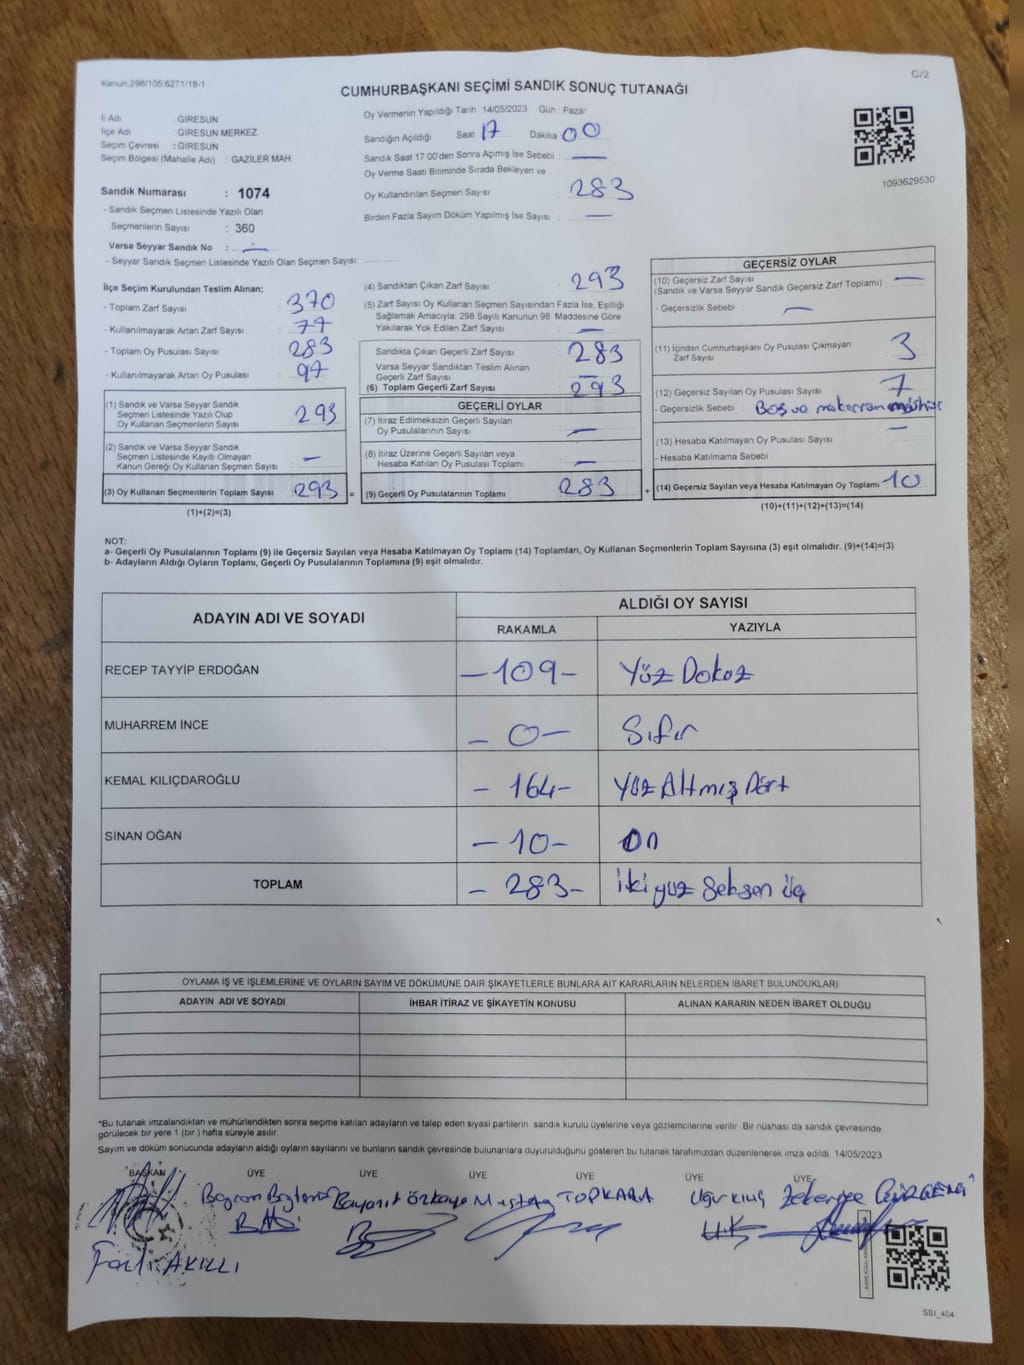 Kanun:298/105:6271/18-1
C/2
CUMHURBAŞKANI SEÇİMİ SANDIK SONUÇ TUTANAĞI
İl Adı : GİRESUN
İlçe Adı : GİRESUN MERKEZ
Seçim Çevresi : GİRESUN
Seçim Bölgesi (Mahalle Adı) : GAZİLER MAH.
Sandık Numarası : 1074
- Sandık Seçmen Listesinde Yazılı Olan
Seçmenlerin Sayısı : 360
Varsa Seyyar Sandık No : —
- Seyyar Sandık Seçmen Listesinde Yazılı Olan Seçmen Sayısı:
Oy Vermenin Yapıldığı Tarih : 14/05/2023 Gün : Pazar
Sandığın Açıldığı Saat 17 Dakika 00
Sandık Saat 17:00'den Sonra Açılmış İse Sebebi —
Oy Verme Saati Bitiminde Sırada Bekleyen ve
Oy Kullandırılan Seçmen Sayısı 283
Birden Fazla Sayım Döküm Yapılmış İse Sayısı : —
1093629530
İlçe Seçim Kurulundan Teslim Alınan;
- Toplam Zarf Sayısı 370
- Kullanılmayarak Artan Zarf Sayısı 77
- Toplam Oy Pusulası Sayısı 283
- Kullanılmayarak Artan Oy Pusulası 97
(1) Sandık ve Varsa Seyyar Sandık
Seçmen Listesinde Yazılı Olup
Oy Kullanan Seçmenlerin Sayısı 293
(2) Sandık ve Varsa Seyyar Sandık
Seçmen Listesinde Kayıtlı Olmayan
Kanun Gereği Oy Kullanan Seçmen Sayısı —
(3) Oy Kullanan Seçmenlerin Toplam Sayısı 293 =
(1)+(2)=(3)
(4) Sandıktan Çıkan Zarf Sayısı 293
(5) Zarf Sayısı Oy Kullanan Seçmen Sayısından Fazla İse, Eşitliği
Sağlamak Amacıyla; 298 Sayılı Kanunun 98. Maddesine Göre
Yakılarak Yok Edilen Zarf Sayısı —
Sandıkta Çıkan Geçerli Zarf Sayısı 283
Varsa Seyyar Sandıktan Teslim Alınan
Geçerli Zarf Sayısı —
(6) Toplam Geçerli Zarf Sayısı 293
GEÇERLİ OYLAR
(7) İtiraz Edilmeksizin Geçerli Sayılan
Oy Pusulalarının Sayısı —
(8) İtiraz Üzerine Geçerli Sayılan veya
Hesaba Katılan Oy Pusulası Toplamı —
(9) Geçerli Oy Pusulalarının Toplamı 283 +
GEÇERSİZ OYLAR
(10) Geçersiz Zarf Sayısı —
(Sandık ve Varsa Seyyar Sandık Geçersiz Zarf Toplamı)
- Geçersizlik Sebebi : —
(11) İçinden Cumhurbaşkanı Oy Pusulası Çıkmayan
Zarf Sayısı 3
(12) Geçersiz Sayılan Oy Pusulası Sayısı 7
- Geçersizlik Sebebi : Boş ve mükerrer
(13) Hesaba Katılmayan Oy Pusulası Sayısı —
- Hesaba Katılmama Sebebi :
(14) Geçersiz Sayılan veya Hesaba Katılmayan Oy Toplamı 10
(10)+(11)+(12)+(13)=(14)
NOT:
a- Geçerli Oy Pusulalarının Toplamı (9) ile Geçersiz Sayılan veya Hesaba Katılmayan Oy Toplamı (14) Toplamları, Oy Kullanan Seçmenlerin Toplam Sayısına (3) eşit olmalıdır. (9)+(14)=(3)
b- Adayların Aldığı Oyların Toplamı, Geçerli Oy Pusulalarının Toplamına (9) eşit olmalıdır.
ADAYIN ADI VE SOYADI
ALDIĞI OY SAYISI
RAKAMLA YAZIYLA
RECEP TAYYİP ERDOĞAN -109- Yüz Dokoz
MUHARREM İNCE -0- Sıfır
KEMAL KILIÇDAROĞLU -164- Yüz Altmış Dört
SİNAN OĞAN -10- On
TOPLAM -283- İki yüz Seksen üç
OYLAMA İŞ VE İŞLEMLERİNE VE OYLARIN SAYIM VE DÖKÜMÜNE DAİR ŞİKAYETLERLE BUNLARA AİT KARARLARIN NELERDEN İBARET BULUNDUKLARI
ADAYIN ADI VE SOYADI İHBAR İTİRAZ VE ŞİKAYETİN KONUSU ALINAN KARARIN NEDEN İBARET OLDUĞU
*Bu tutanak imzalandıktan ve mühürlendikten sonra seçime katılan adayların ve talep eden siyasi partilerin sandık kurulu üyelerine veya gözlemcilerine verilir. Bir nüshası da sandık çevresinde
görülecek bir yere 1 (bir) hafta süreyle asılır.
Sayım ve döküm sonucunda adayların aldığı oyların sayılarını ve bunların sandık çevresinde bulunanlara duyurulduğunu gösteren bu tutanak tarafımızdan düzenlenerek imza edildi. 14/05/2023
BAŞKAN ÜYE ÜYE ÜYE ÜYE ÜYE ÜYE
Bayram Beyazıt Özkaya Mustafa TOPKARA Uğur Kılıç Zekeriya
AKILLI
SSI_404